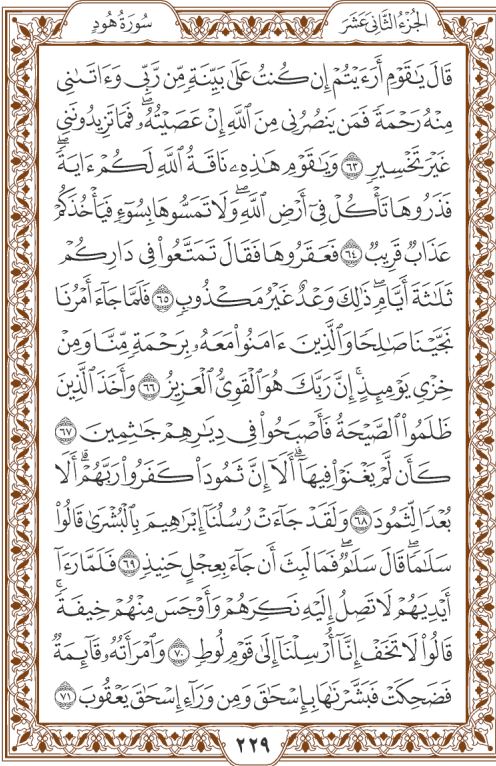 الجُزْءُ الثَّانِي عَشَرَ
سُورَةُ هُودٍ
قَالَ يَٰقَوْمِ أَرَءَيْتُمْ إِن كُنتُ عَلَىٰ بَيِّنَةٍ مِّن رَّبِّي وَءَاتَىٰنِي
مِنْهُ رَحْمَةً فَمَن يَنصُرُنِي مِنَ ٱللَّهِ إِنْ عَصَيْتُهُۥۖ فَمَا تَزِيدُونَنِي
غَيْرَ تَخْسِيرٍ ٦٣ وَيَٰقَوْمِ هَٰذِهِۦ نَاقَةُ ٱللَّهِ لَكُمْ ءَايَةًۖ
فَذَرُوهَا تَأْكُلْ فِيٓ أَرْضِ ٱللَّهِۖ وَلَا تَمَسُّوهَا بِسُوٓءٍ فَيَأْخُذَكُمْ
عَذَابٌ قَرِيبٌ ٦٤ فَعَقَرُوهَا فَقَالَ تَمَتَّعُوا۟ فِي دَارِكُمْ
ثَلَٰثَةَ أَيَّامٍۖ ذَٰلِكَ وَعْدٌ غَيْرُ مَكْذُوبٍ ٦٥ فَلَمَّا جَآءَ أَمْرُنَا
نَجَّيْنَا صَٰلِحًا وَٱلَّذِينَ ءَامَنُوا۟ مَعَهُۥ بِرَحْمَةٍ مِّنَّا وَمِنْ
خِزْيِ يَوْمِئِذٍۚ إِنَّ رَبَّكَ هُوَ ٱلْقَوِيُّ ٱلْعَزِيزُ ٦٦ وَأَخَذَ ٱلَّذِينَ
ظَلَمُوا۟ ٱلصَّيْحَةُ فَأَصْبَحُوا۟ فِي دِيَٰرِهِمْ جَٰثِمِينَ ٦٧
كَأَن لَّمْ يَغْنَوْا۟ فِيهَآۗ أَلَآ إِنَّ ثَمُودَا۟ كَفَرُوا۟ رَبَّهُمْۗ أَلَا
بُعْدًا لِّثَمُودَ ٦٨ وَلَقَدْ جَآءَتْ رُسُلُنَآ إِبْرَٰهِيمَ بِٱلْبُشْرَىٰ قَالُوا۟
سَلَٰمًاۖ قَالَ سَلَٰمٌۖ فَمَا لَبِثَ أَن جَآءَ بِعِجْلٍ حَنِيذٍ ٦٩ فَلَمَّا رَءَآ
أَيْدِيَهُمْ لَا تَصِلُ إِلَيْهِ نَكِرَهُمْ وَأَوْجَسَ مِنْهُمْ خِيفَةًۚ
قَالُوا۟ لَا تَخَفْ إِنَّآ أُرْسِلْنَآ إِلَىٰ قَوْمِ لُوطٍ ٧٠ وَٱمْرَأَتُهُۥ قَآئِمَةٌ
فَضَحِكَتْ فَبَشَّرْنَٰهَا بِإِسْحَٰقَ وَمِن وَرَآءِ إِسْحَٰقَ يَعْقُوبَ ٧١
٢٢٩